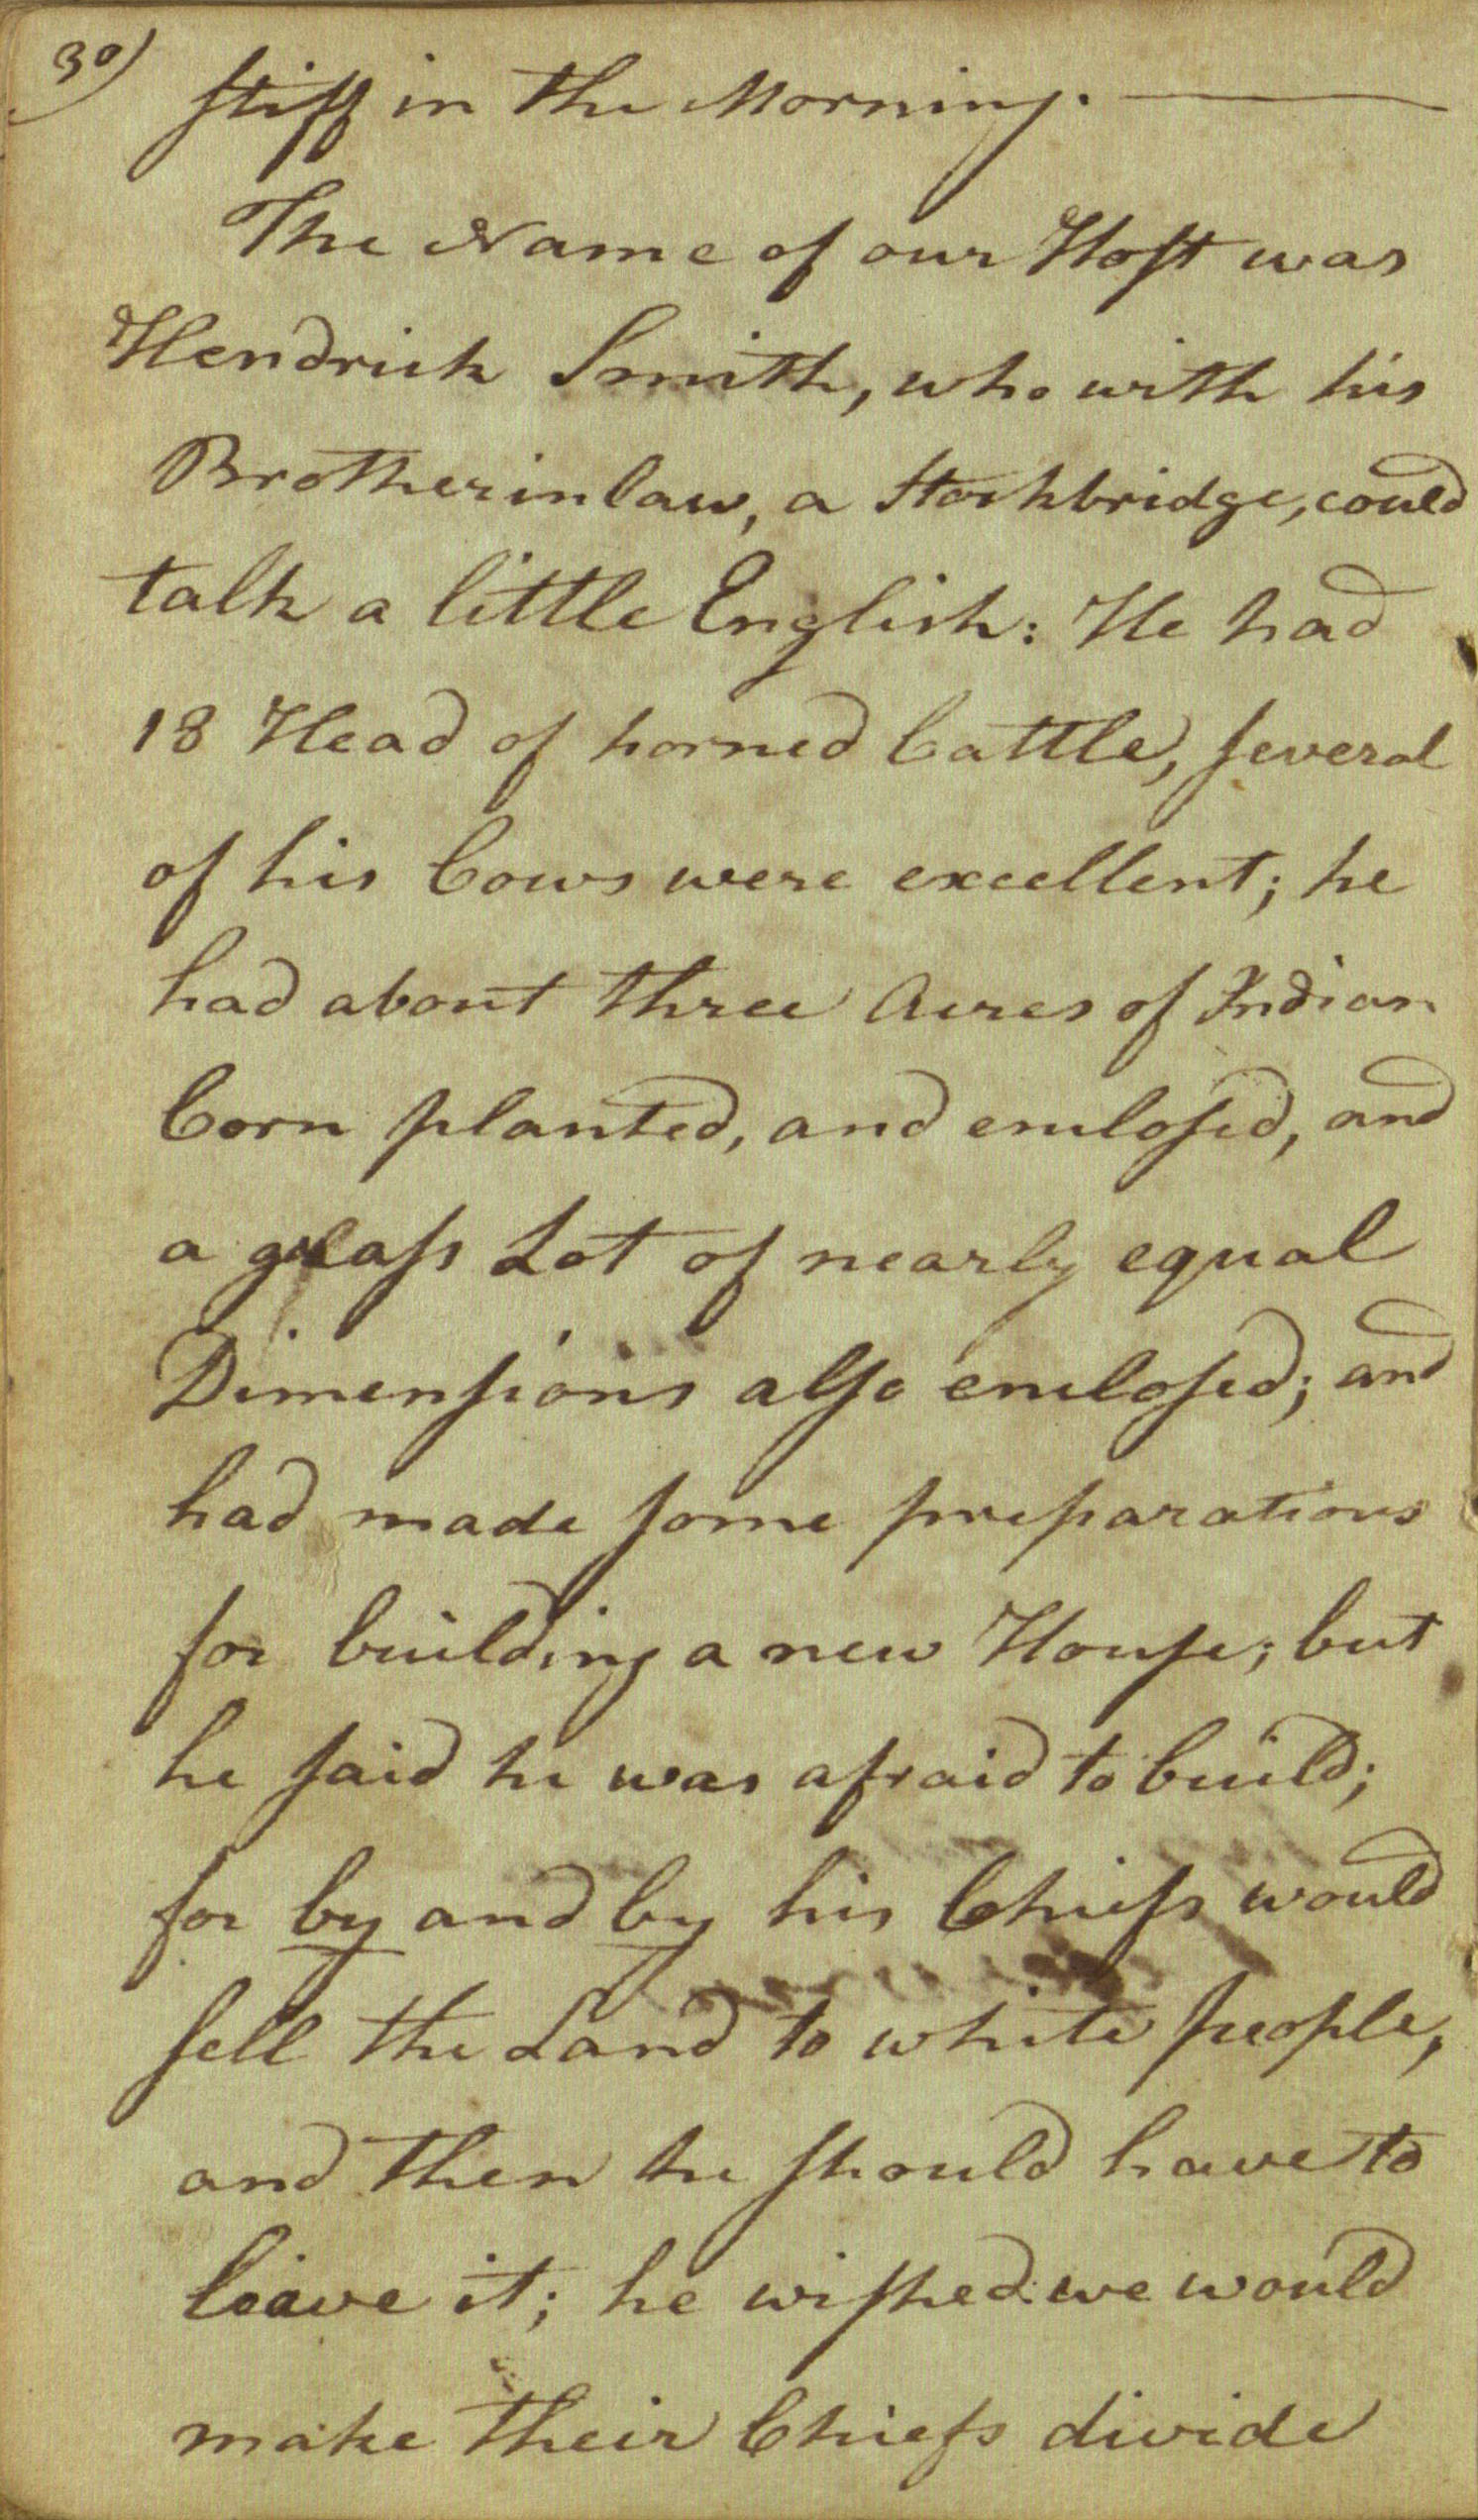 30)
stiff in the Morning. —
The Name of our Host was
Hendrick Smith, who with his
Brotherinlaw, a Stockbridge, could
talk a little English: He had
18 Head of horned Cattle, several
of his Cows were excellent; he
had about three Acres of Indian
Corn planted, and enclosed, and
a grass Lot of nearly equal
Dimensions also enclosed; and
had made some preparations
for building a new House; but
he said he was afraid to build;
for by and by his Chiefs would
sell the Land to white people,
and then he should have to
leave it; he wished we would
make their Chiefs divide